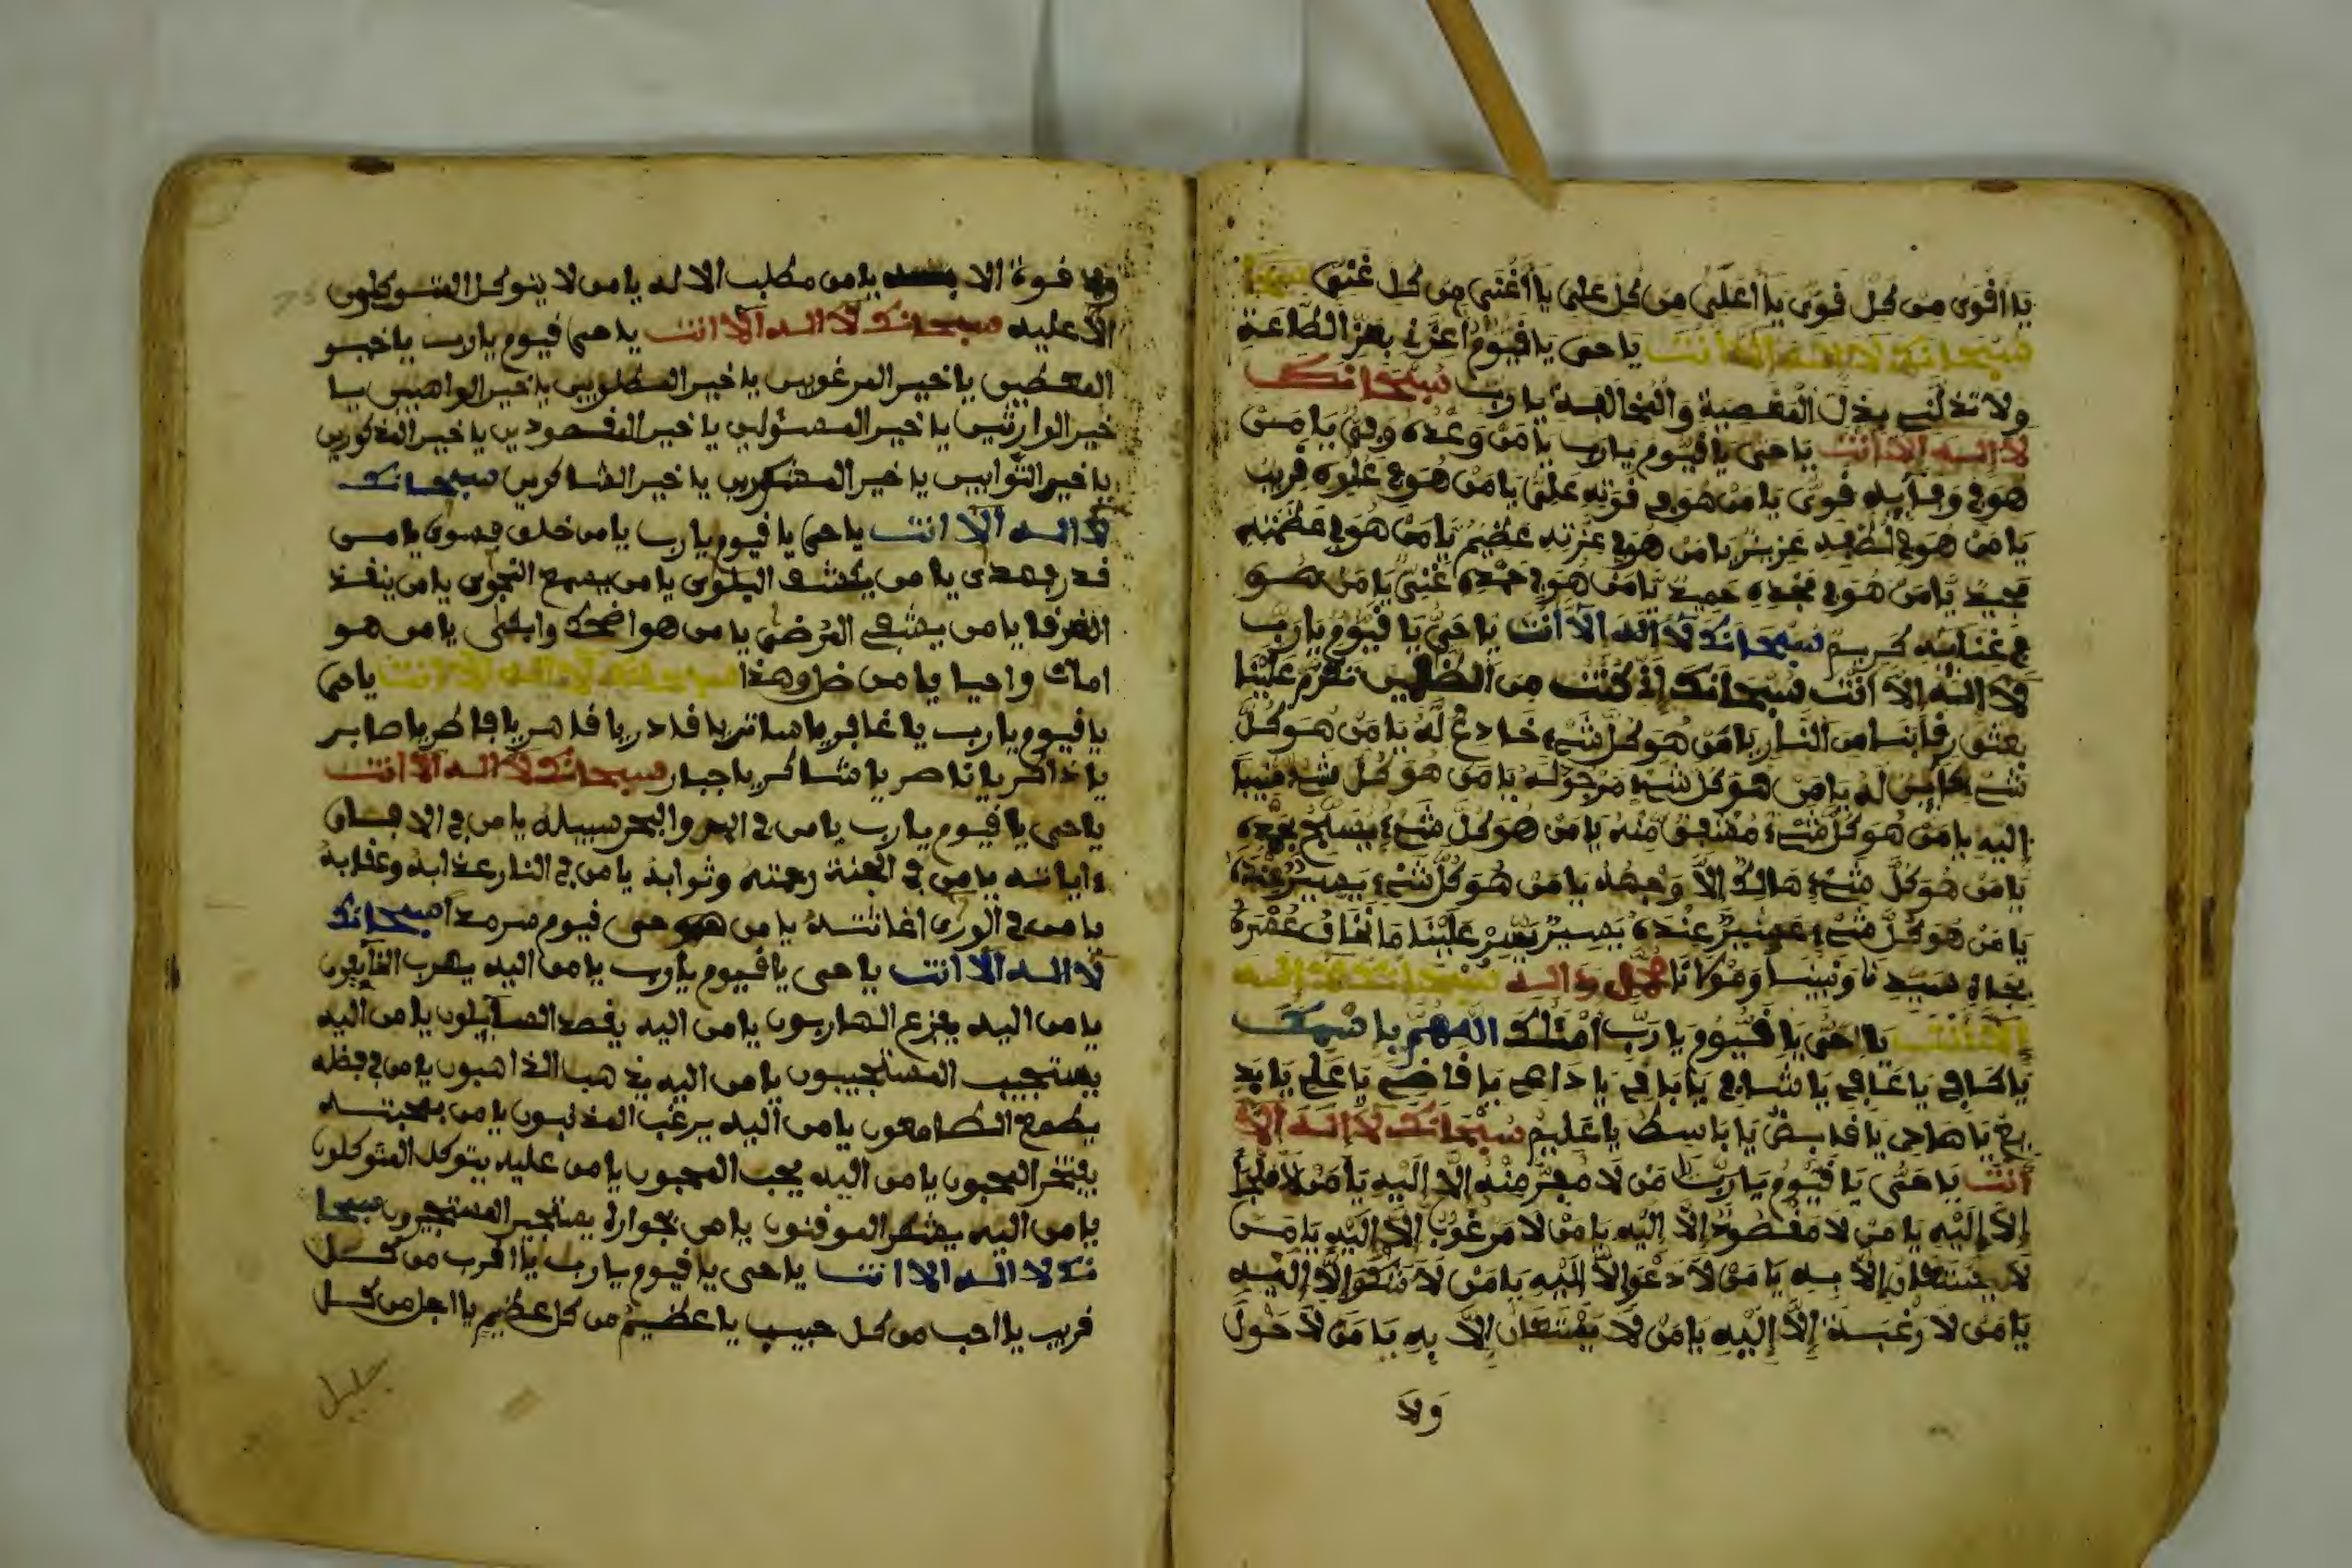 يا أقوى من كل قوي يا أعلى من كل علي يا أغنى من كل غني
سبحانك لا اله الا أنت يا حي يا قيوم أعزني بعز الطاعة
ولا تذلني بذل المعصية والمخالفة يا رب سبحانك
لا اله الا أنت يا حي يا قيوم يا رب يا من وعده وفي يا من
هو في وفايه قوي يا من هو في قوته علي يا من هو في علوه قريب
يا من هو في لطفه عزيز يا من هو في عزته عظيم يا من هو في عظمته
مجيد يا من هو في مجده حميد يا من هو في حمده غني يا من هو
في غنايه كريم سبحانك لا اله الا أنت يا حي يا قيوم يا رب
لا اله الا أنت سبحانك إني كنت من الظلمين تكرم علينا
بعتق رقابنا من النار يا من هو كل شيء خادع له يا من هو كل
شيء كاين له يا من هو كل شيء مرجوله يا من هو كل شيء منيبا
اليه يا من هو كل شيء منه يا من هو كل شيء يسبح بحمده
يا من هو كل شيء هالك إلا وجهه يا من هو كل شيء
يا من هو كل شيء عسير عنده يسير يسر علينا ما نخاف عسره
بجاه سيدنا ونبينا ومولانا محمد وءاله سبحانك لا اله
إلا أنت يا حي يا قيوم يا رب أسئلك اللهم باسمك
يا كافي يا عافي يا شافي يا باقي يا داعي يا قاضي يا علي يا بد
يع يا هادي يا قابض يا باسط يا عليم سبحانك لا اله الا
أنت يا حي يا قيوم يا رب يا من لا مفر منه إلا إليه يا من لا ملجأ
إلا إليه يا من لا مقصود إلا إليه يا من لا مرغوب إلا إليه يا من
لا يستعان إلا به يا من لا دعوا إلا إليه يا من لا شكوا إلا إليه
يا من لا رغبة إلا إليه يا من لا يستعان إلا به يا من لا حول
ولا
ولا قوة الا به يا من مطلب الا له يا من لا يتوكل المتوكلون
الا عليه سبحانك لا اله الا انت يا حي قيوم يا رب يا خير
المعطين يا خير المرغوبين يا خير المطلوبين يا خير الواهبين يا
خير الوارثين يا خير المسئولين يا خير المقصودين يا خير المذكورين
يا خير التوابين يا خير المشكورين يا خير الشاكرين سبحانك
لا اله الا انت يا حي يا قيوم يا رب يا من خلق فسوى يا من
قدر فهدى يا من يكشف البلوى يا من يسمع النجوى يا من ينقذ
الغرقا يا من يشفي المرضى يا من هو اضحك وابكى يا من هو
امات واحيا يا من سبحانك لا اله الا انت يا حي
يا قيوم يا رب يا غافر يا ساتر يا قادر يا قاهر يا فاطر يا صابر
يا ذاكر يا ناصر يا شاكر يا جبار سبحانك لا اله الا انت
يا حي يا قيوم يا رب يا من في البر والبحر سبيله يا من في الافاق
ءاياته يا من في الجنة رحمته وثوابه يا من في النار عذابه وعقابه
يا من في الورى اغاثته يا من هو حي قيوم سرمدا سبحانك
لا اله الا انت يا حي يا قيوم يا رب يا من اليه يهرب الخايفون
يا من اليه يفزع الهاربون يا من اليه يقصد السايلون يا من اليه
يستجيب المستجيبون يا من اليه يذهب الذاهبون يا من في فضله
يطمع الطامعون يا من اليه يرغب المذنبون يا من بمحبته
يفتخر المحبون يا من اليه يحب المحبون يا من عليه يتوكل المتوكلون
يا من اليه يشكر الموقنون يا من بجواره يستجير المستجيرون سبحا
نك لا اله الا انت يا حي يا قيوم يا رب يا اقرب من كل
قريب يا احب من كل حبيب يا عظيم من كل عظيم يا اجل من كل
جليل